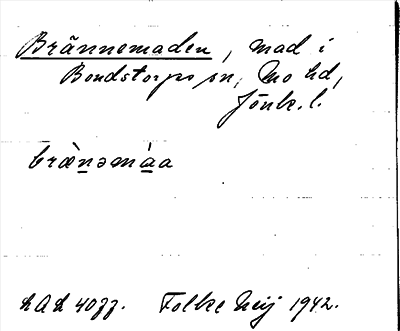 Brännemaden, mad i
Bondstorps sn, Mo hd,
Jönk. l.
bræ̀nəmàa
Folke Heij 1942.